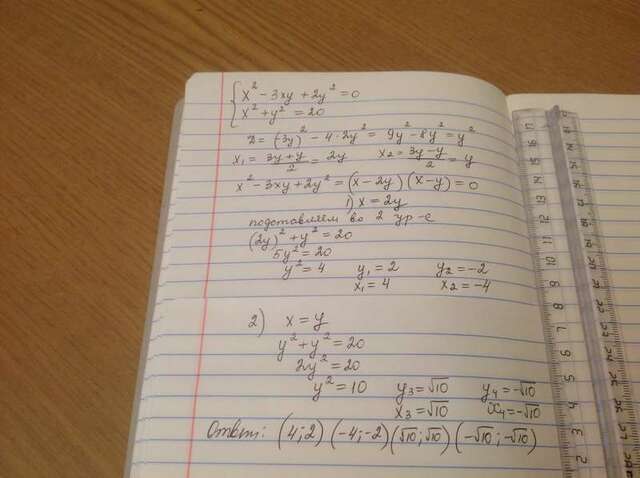 x² - 3xy + 2y² = 0
x² + y² = 20
D = (3y)² - 4·2y² = 9y² - 8y² = y²
x₁ = (3y+y)/2 = 2y x₂ = (3y-y)/2 = y
x² - 3xy + 2y² = (x-2y)(x-y) = 0
1) x = 2y
подставляем во 2 ур-е
(2y)² + y² = 20
5y² = 20
y² = 4 y₁ = 2 y₂ = -2
x₁ = 4 x₂ = -4
2) x = y
y² + y² = 20
2y² = 20
y² = 10 y₃ = √10 y₄ = -√10
x₃ = √10 x₄ = -√10
Ответ: (4;2) (-4;-2) (√10;√10) (-√10;-√10)